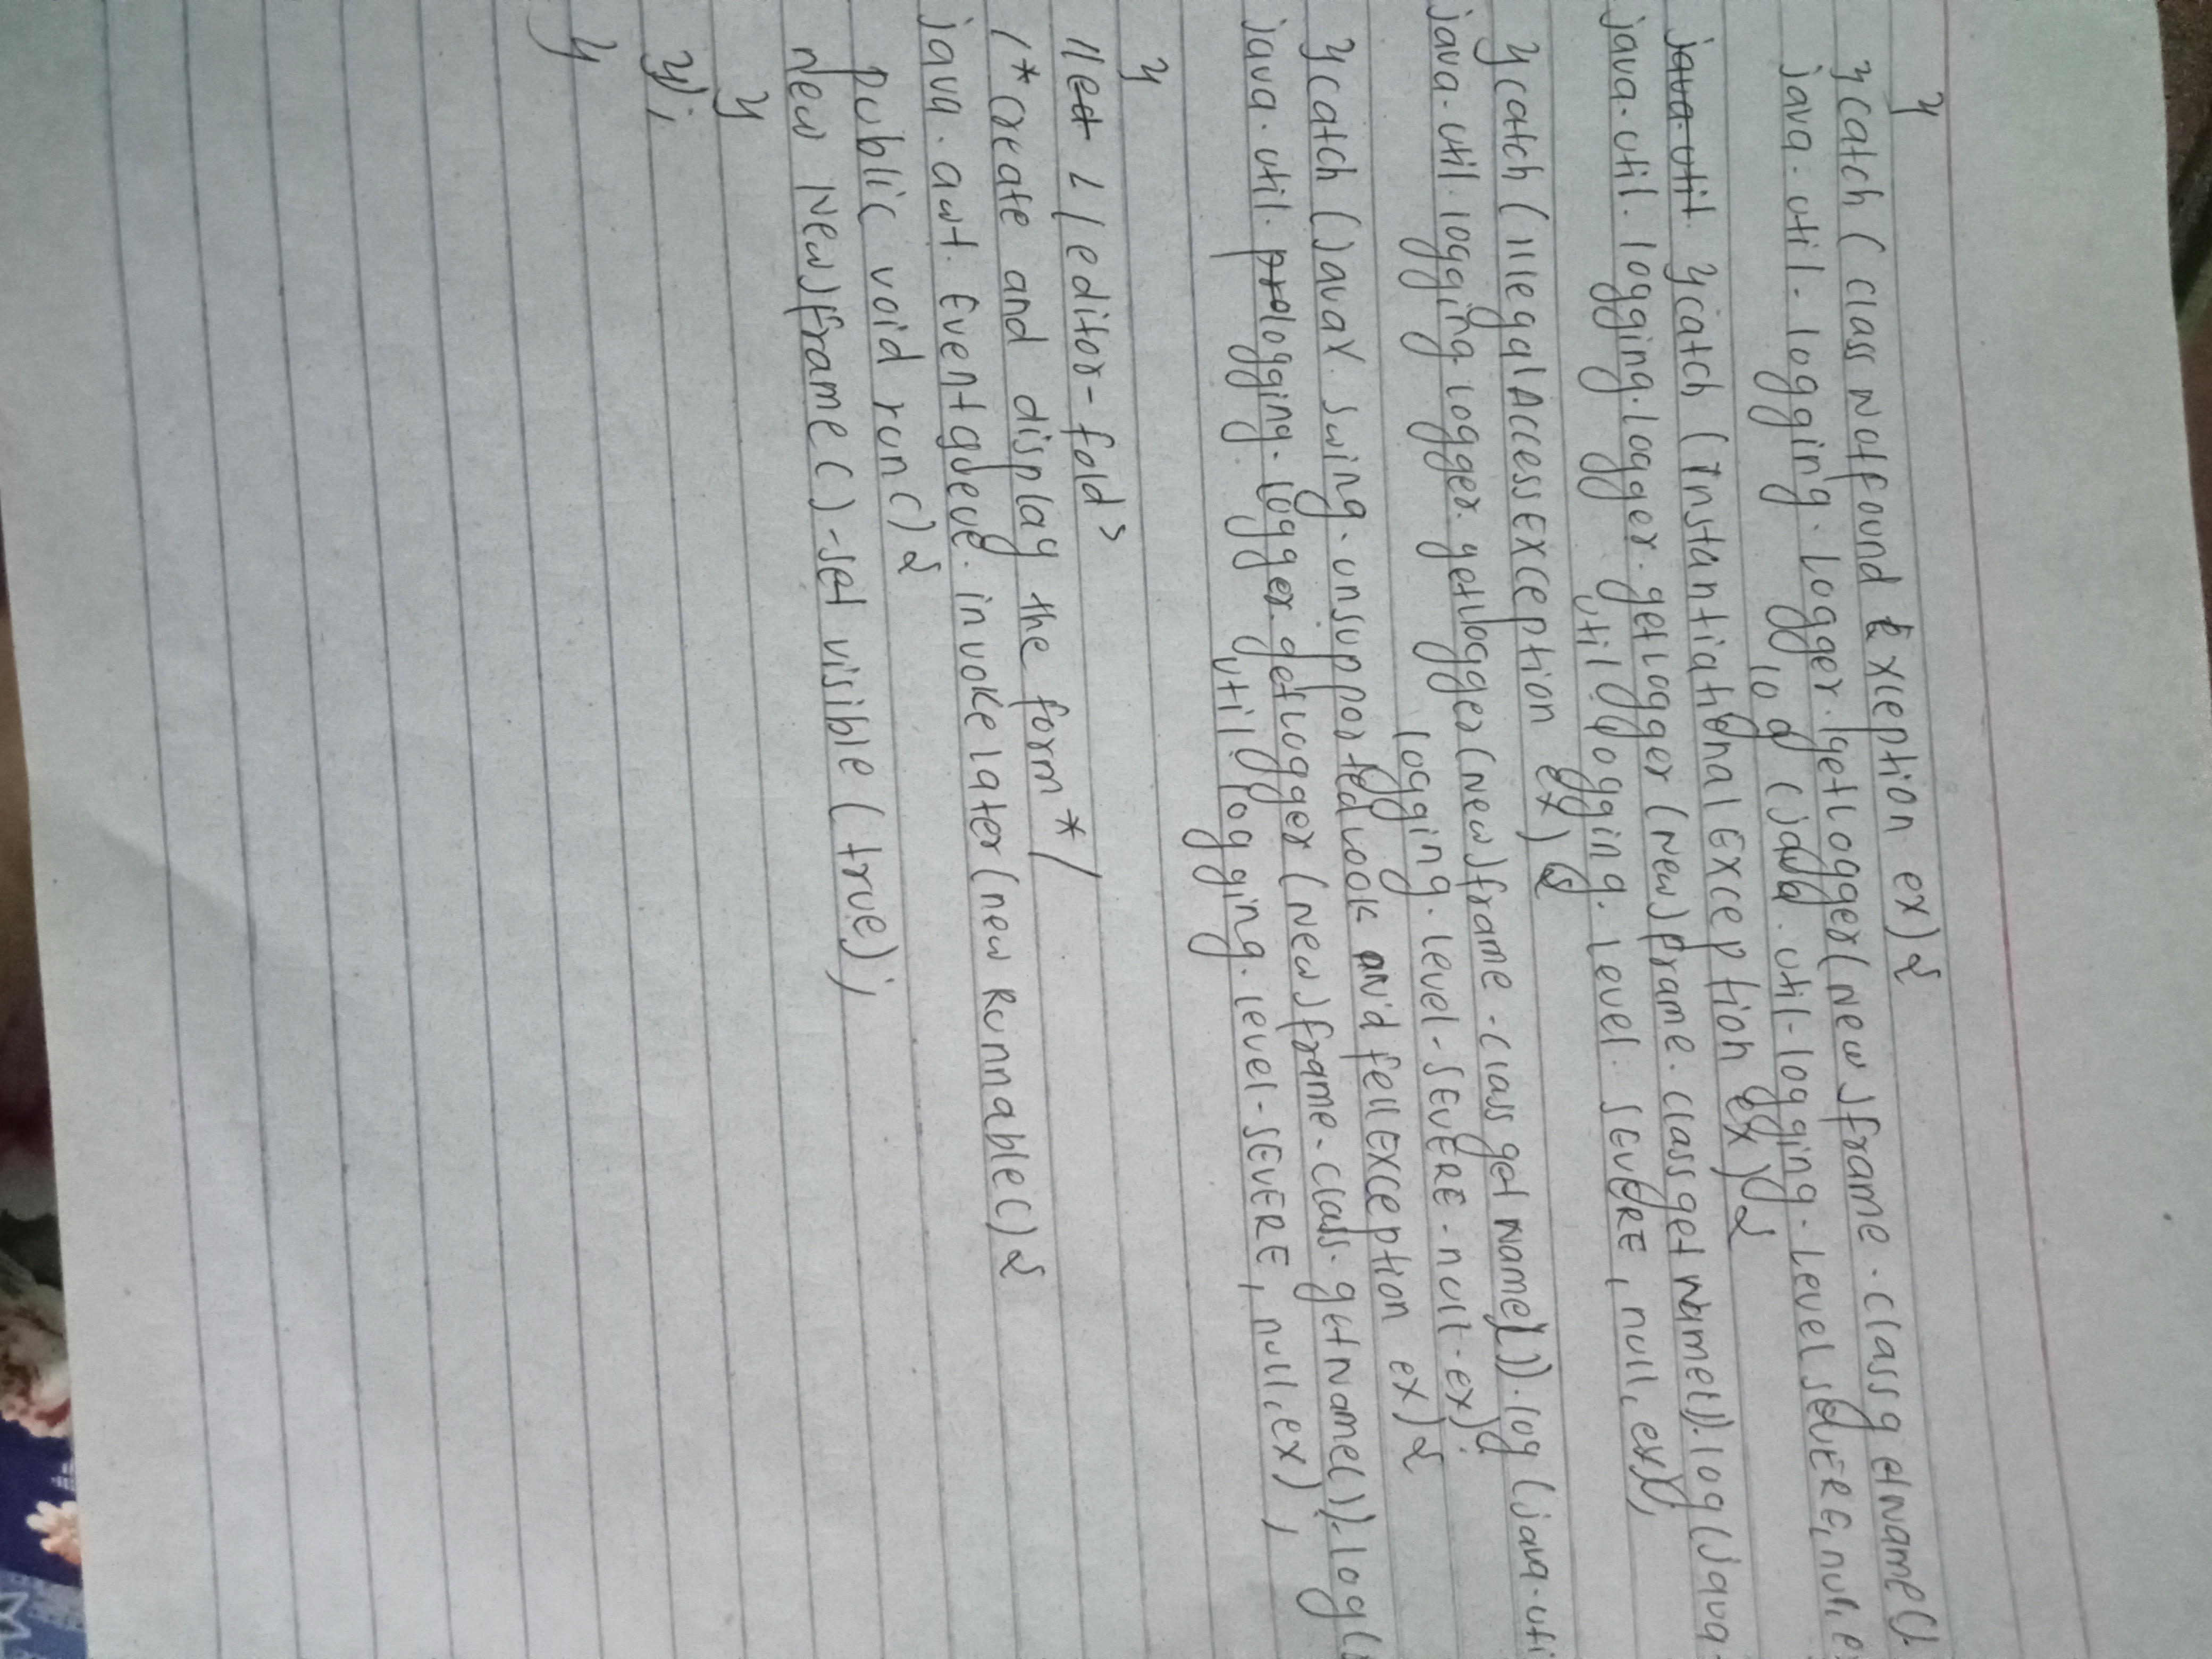 }
} catch ( class Notfound Exception ex) {
java. util. logging. logger. getlogger( New Jframe. class getName().
log (java. util. logging. level SEVERE, null, e
java util. } catch ( Instantiational Exception ex) {
java. util. logging. logger. getlogger ( New Jframe. class get Name()). log (java.
util logging. level. SEVERE, null, ex);
} catch ( IllegalAccessException ex) {
java. util. logging. logger. getlogger( New Jframe. class get Name()). log (java. uti
logging. level. SEVERE. null. ex);
} catch ( javax. swing. unsupported look and fell Exception ex) {
java. util. prologging. logger. getlogger ( New Jframe. class. getName()). log(
util logging. level. SEVERE, null, ex);
}
//ed < / editor-fold>
/* create and display the form */
java. awt. Event queue. invoke later (new Runnable() {
public void run() {
new New Jframe(). set visible (true);
}
});
}